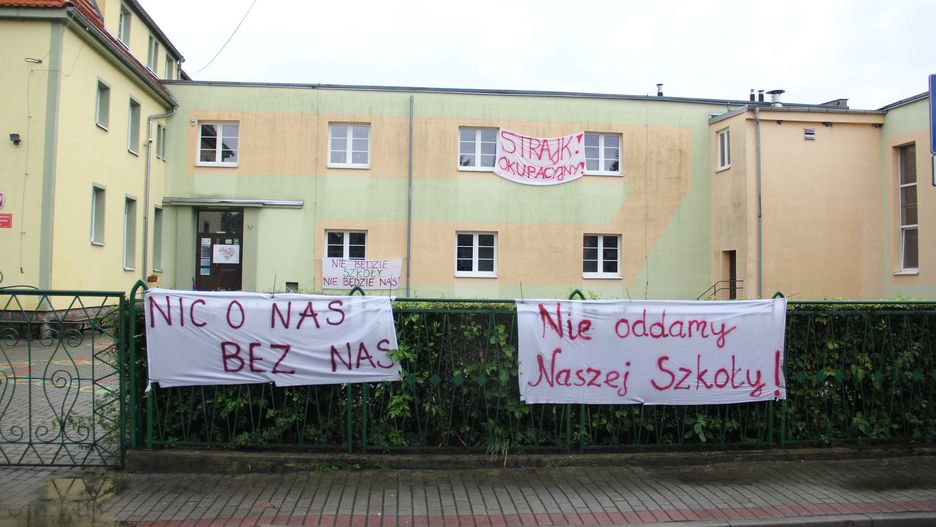 STRAJK!
OKUPACYJNY!
NIE BĘDZIE
SZKOŁY
NIE BĘDZIE NAS
NIC O NAS
BEZ NAS
Nie oddamy
Naszej Szkoły!